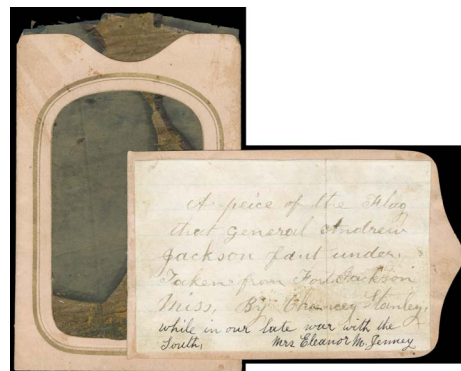 A peice of the Flag
that general Andrew
Jackson faut under.
Taken from Fort Jackson
Miss, By Chancey Stanley,
while in our late war with the
South, Mrs Eleanor M. Jenney